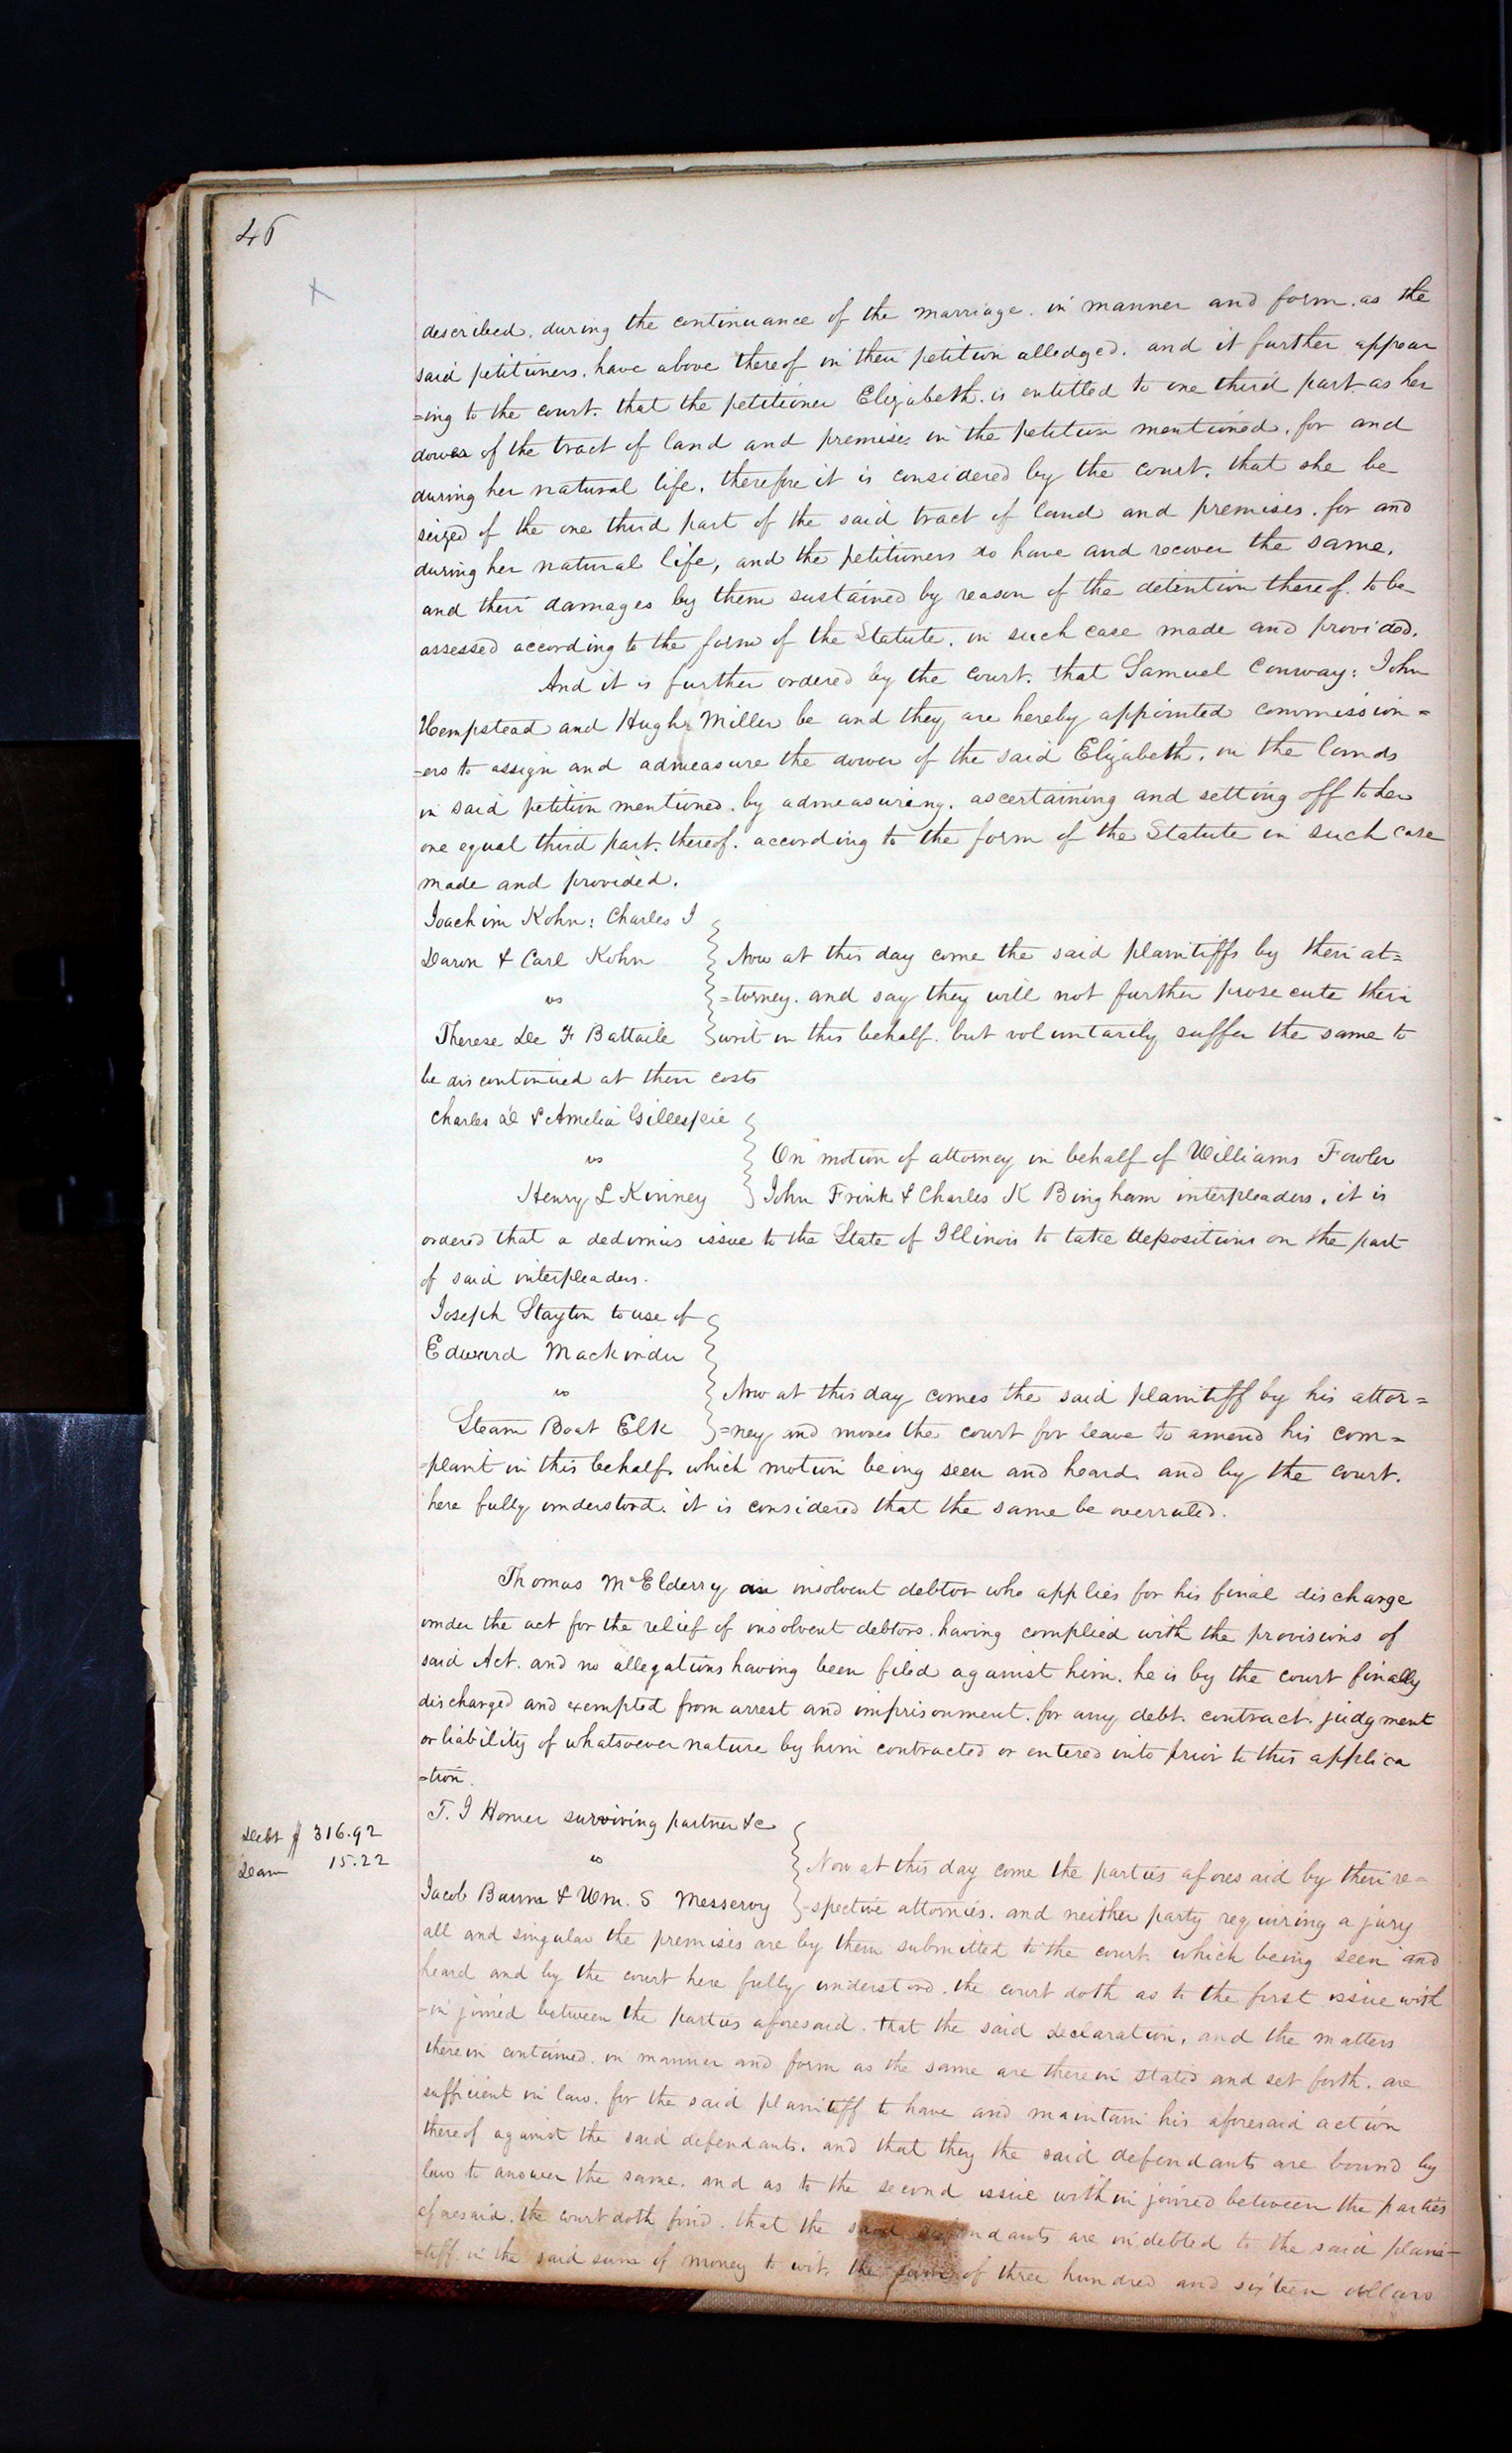 46
described. during the continuance of the marriage. in manner and form. as the
said petitioners. have above thereof in their petition alledged. and it further appear
=ing to the court. that the petitioner Elizabeth. is entitled to one third part as her
dower of the tract of land and premises in the petition mentioned. for and
during her natural life. therefore it is considered by the court. that she be
seized of the one third part of the said tract of land and premises. for and
during her natural life, and the petitioners do have and recover the same.
and their damages by them sustained by reason of the detention thereof. to be
assessed according to the form of the Statute. in such case made and provided.
And it is further ordered by the court. that Samuel Conway: John
Hempstead and Hugh Miller be and they are hereby appointed commission=
=ers to assign and admeasure the dower of the said Elizabeth. in the lands
in said petition mentioned. by admeasuring. ascertaining and setting off to her
one equal third part. thereof. according to the form of the Statute in such case
made and provided.
Joachim Kohn: Charles J
Daron & Carl Kohn
vs
Therese De F Battaile
Now at this day come the said plaintiffs by their at=
=torney. and say they will not further prosecute their
writ in this behalf. but voluntarily suffer the same to
be discontinued at their costs
Charles D & Amelia Gillespie
vs
Henry L Kinney
On motion of attorney in behalf of Williams Fowler
John Frink & Charles K Bingham interpleaders, it is
ordered that a dedimus issue to the State of Illinois to take depositions on the part
of said interpleaders.
Joseph Slayton to use of
Edward Mackinder
vs
Steam Boat Elk
Now at this day comes the said plaintiff by his attor=
=ney and moves the court for leave to amend his com=
=plaint in this behalf. which motion being seen and heard. and by the court.
here fully understood. it is considered that the same be overruled.
Thomas McElderry an insolvent debtor who applies for his final discharge
under the act for the relief of insolvent debtors. having complied with the provisions of
said Act. and no allegations having been filed against him. he is by the court finally
discharged and exempted from arrest and imprisonment. for any debt. contract. judgment
or liability of whatsoever nature by him contracted or entered into prior to this applica
=tion.
T. J Homer surviving partner &c
vs
Jacob Bunn & Wm. S Messervy
Debt $ 316.92
Dam 15.22
Now at this day come the parties aforesaid by their re=
=spective attornies. and neither party requiring a jury
all and singular the premises are by them submitted to the court. which being seen and
heard and by the court here fully understood. the court doth as to the first issue with
=in joined between the parties aforesaid. that the said declaration, and the matters
therein contained. in manner and form as the same are therein stated and set forth. are
sufficient in law. for the said plaintiff to have and maintain his aforesaid action
thereof against the said defendants. and that they the said defendants are bound by
law to answer the same. and as to the second issue within joined between the parties
aforesaid. the court doth find. that the said defendants are indebted to the said plain=
=tiff. in the said sum of money to wit. the sum of three hundred and sixteen dollars